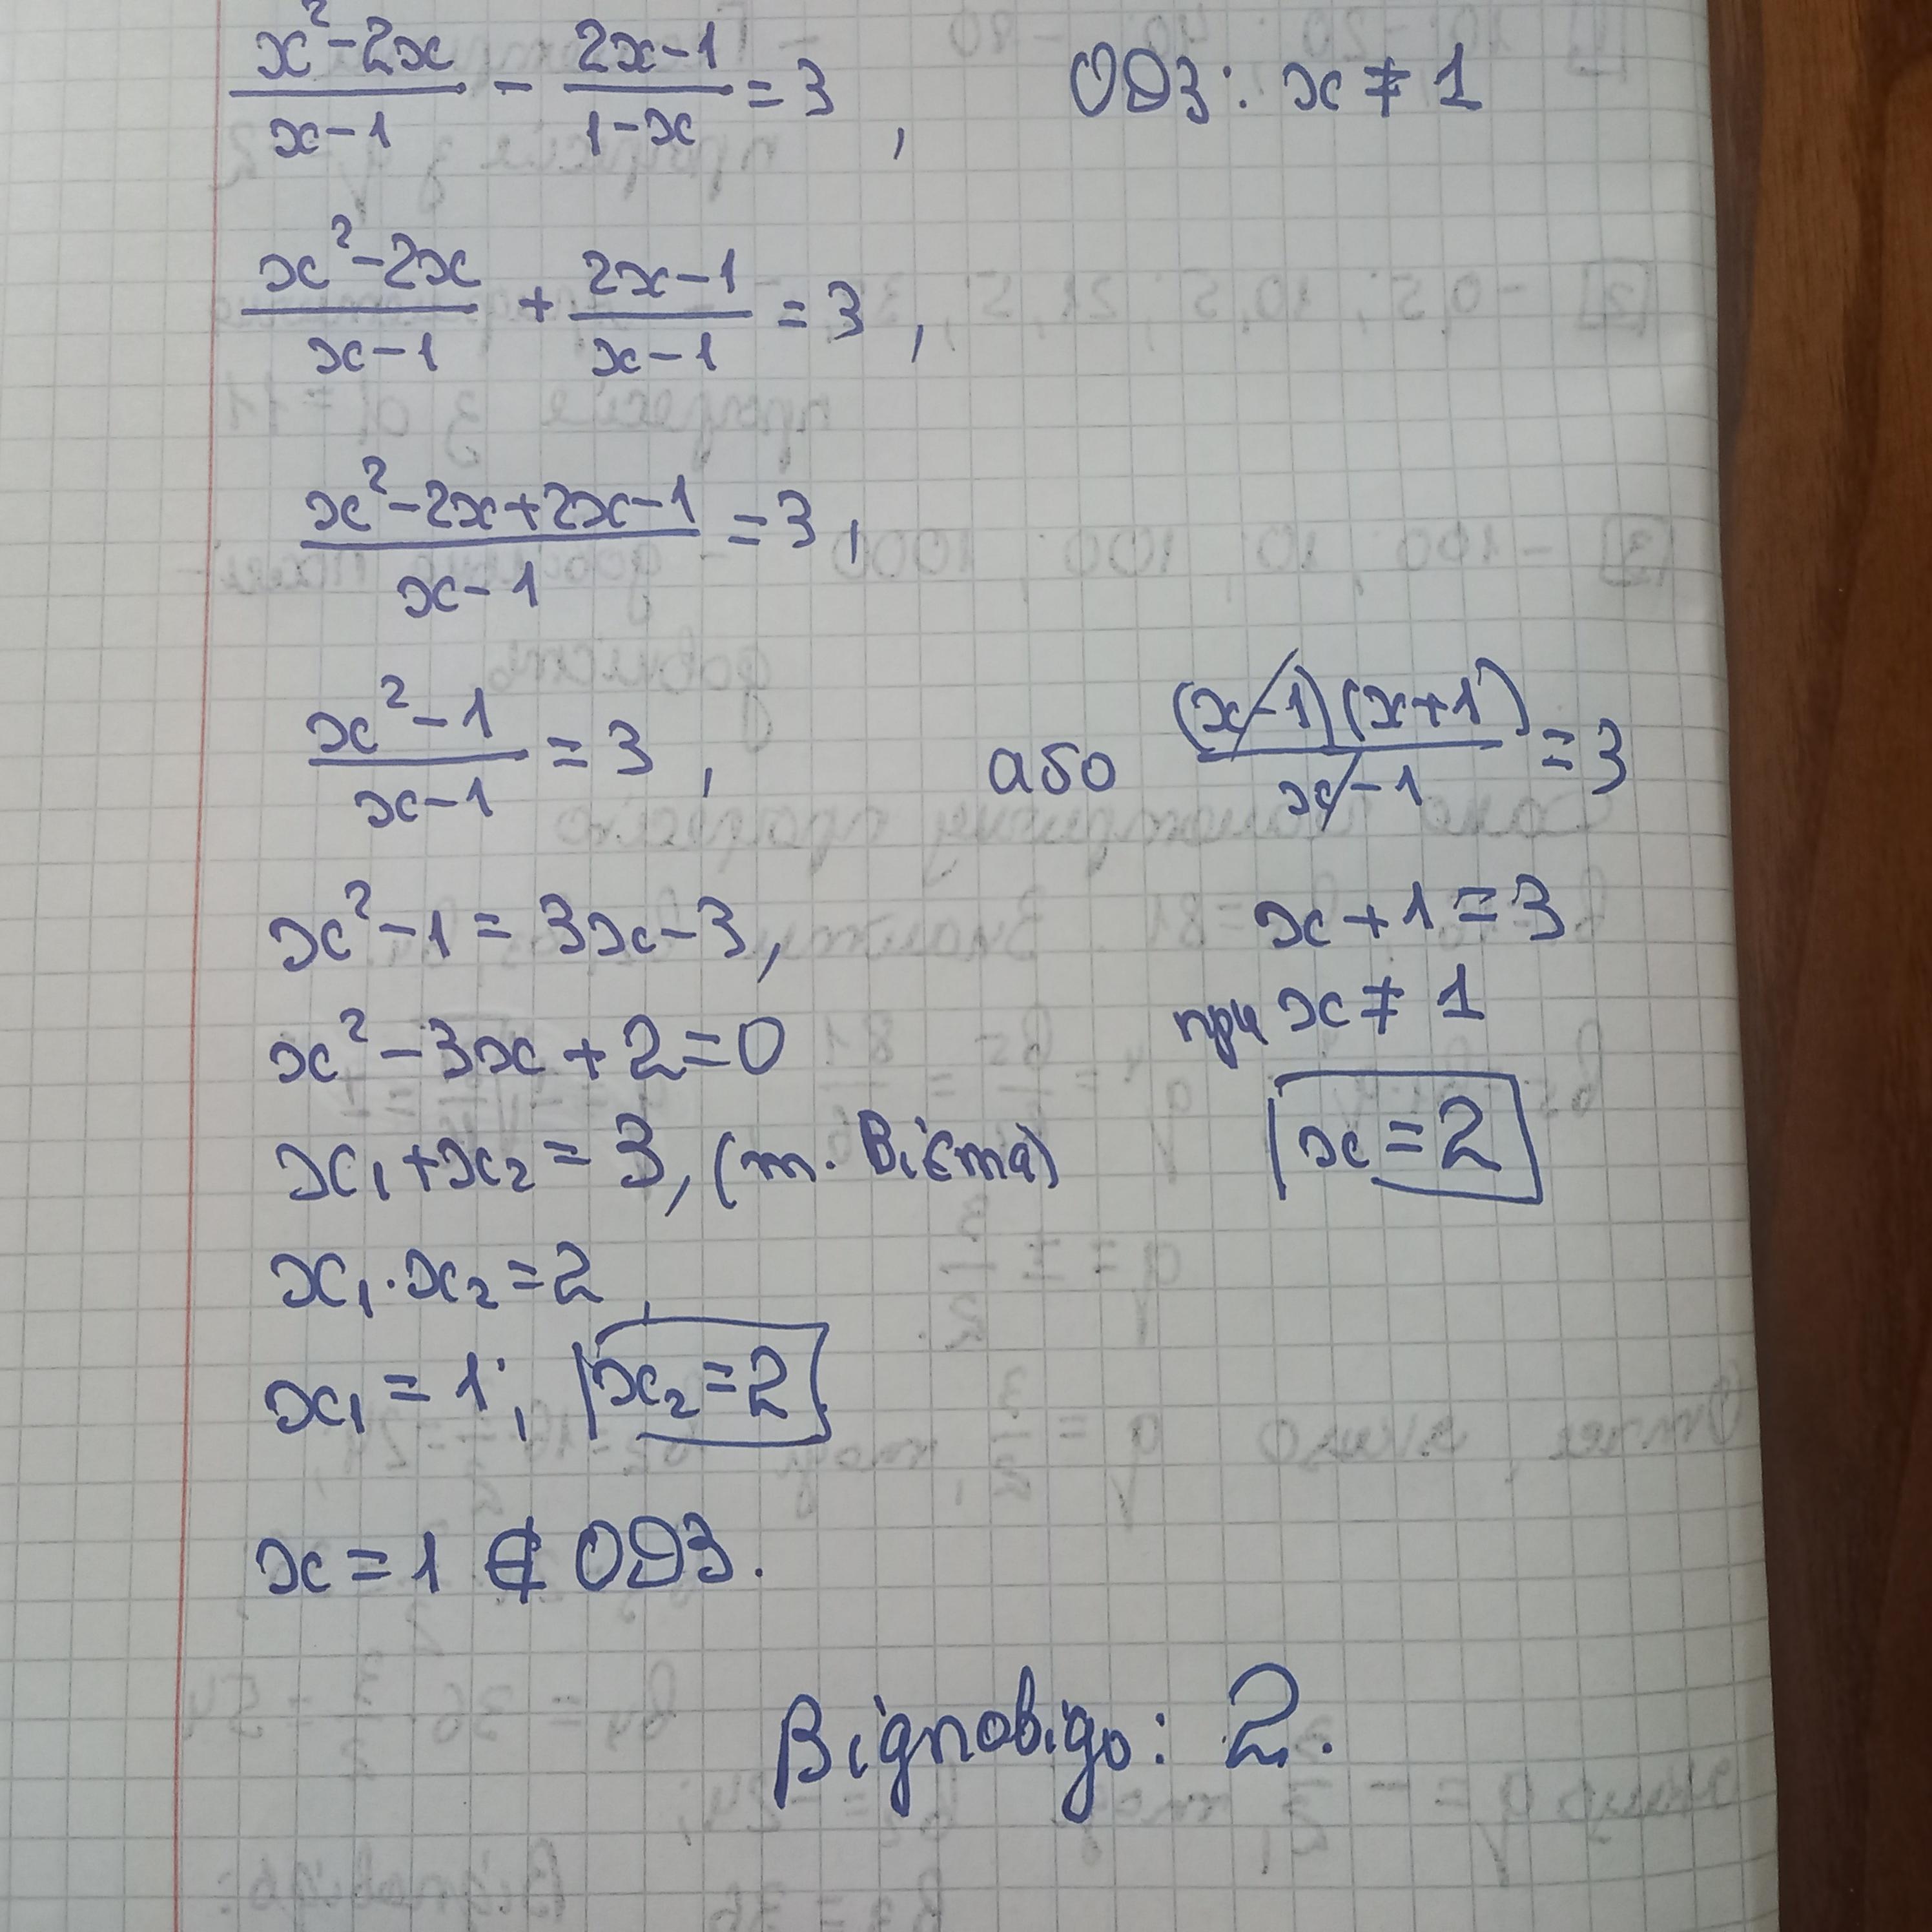 (x²-2x)/(x-1) - (2x-1)/(1-x) = 3, ОДЗ: x ≠ 1
(x²-2x)/(x-1) + (2x-1)/(x-1) = 3,
(x²-2x+2x-1)/(x-1) = 3,
(x²-1)/(x-1) = 3, або ((x-1)(x+1))/(x-1) = 3
x²-1 = 3x-3, x+1 = 3
x²-3x+2=0 при x ≠ 1
x₁+x₂ = 3, (т. Вієта) x = 2
x₁·x₂ = 2,
x₁ = 1; x₂ = 2
x = 1 ∉ ОДЗ.
Відповідь: 2.